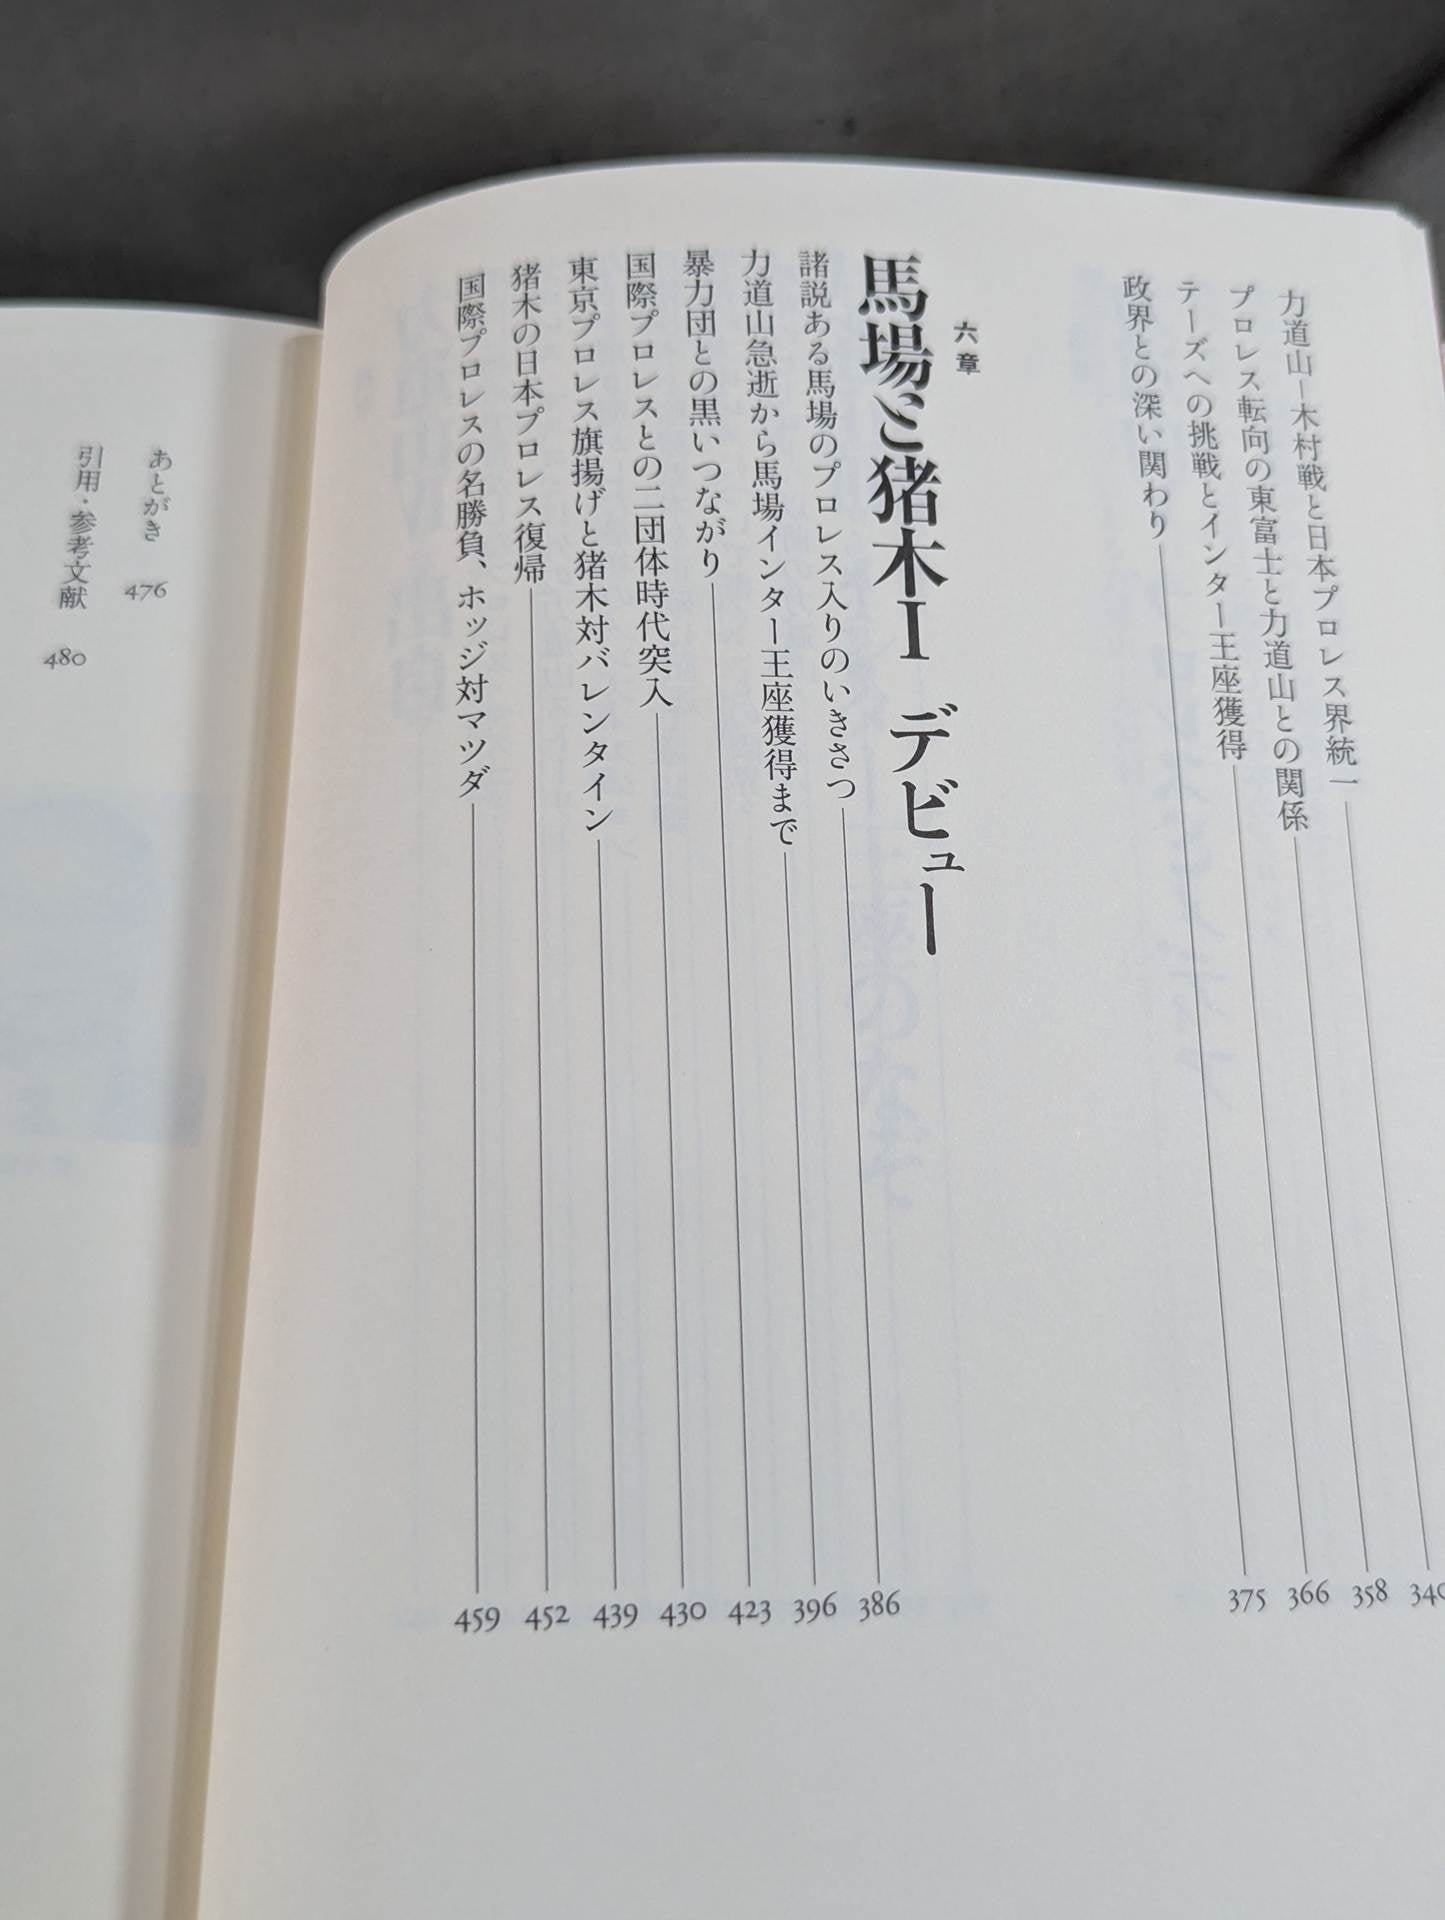 力道山ー木村戦と日本プロレス界統一 340
プロレス転向の東富士と力道山との関係 358
テーズへの挑戦とインター王座獲得 366
政界との深い関わり 375
六章
馬場と猪木I デビュー
諸説ある馬場のプロレス入りのいきさつ 386
力道山急逝から馬場インター王座獲得まで 396
暴力団との黒いつながり 423
国際プロレスとの二団体時代突入 430
東京プロレス旗揚げと猪木対バレンタイン 439
猪木の日本プロレス復帰 452
国際プロレスの名勝負、ホッジ対マツダ 459
あとがき 476
引用・参考文献 480